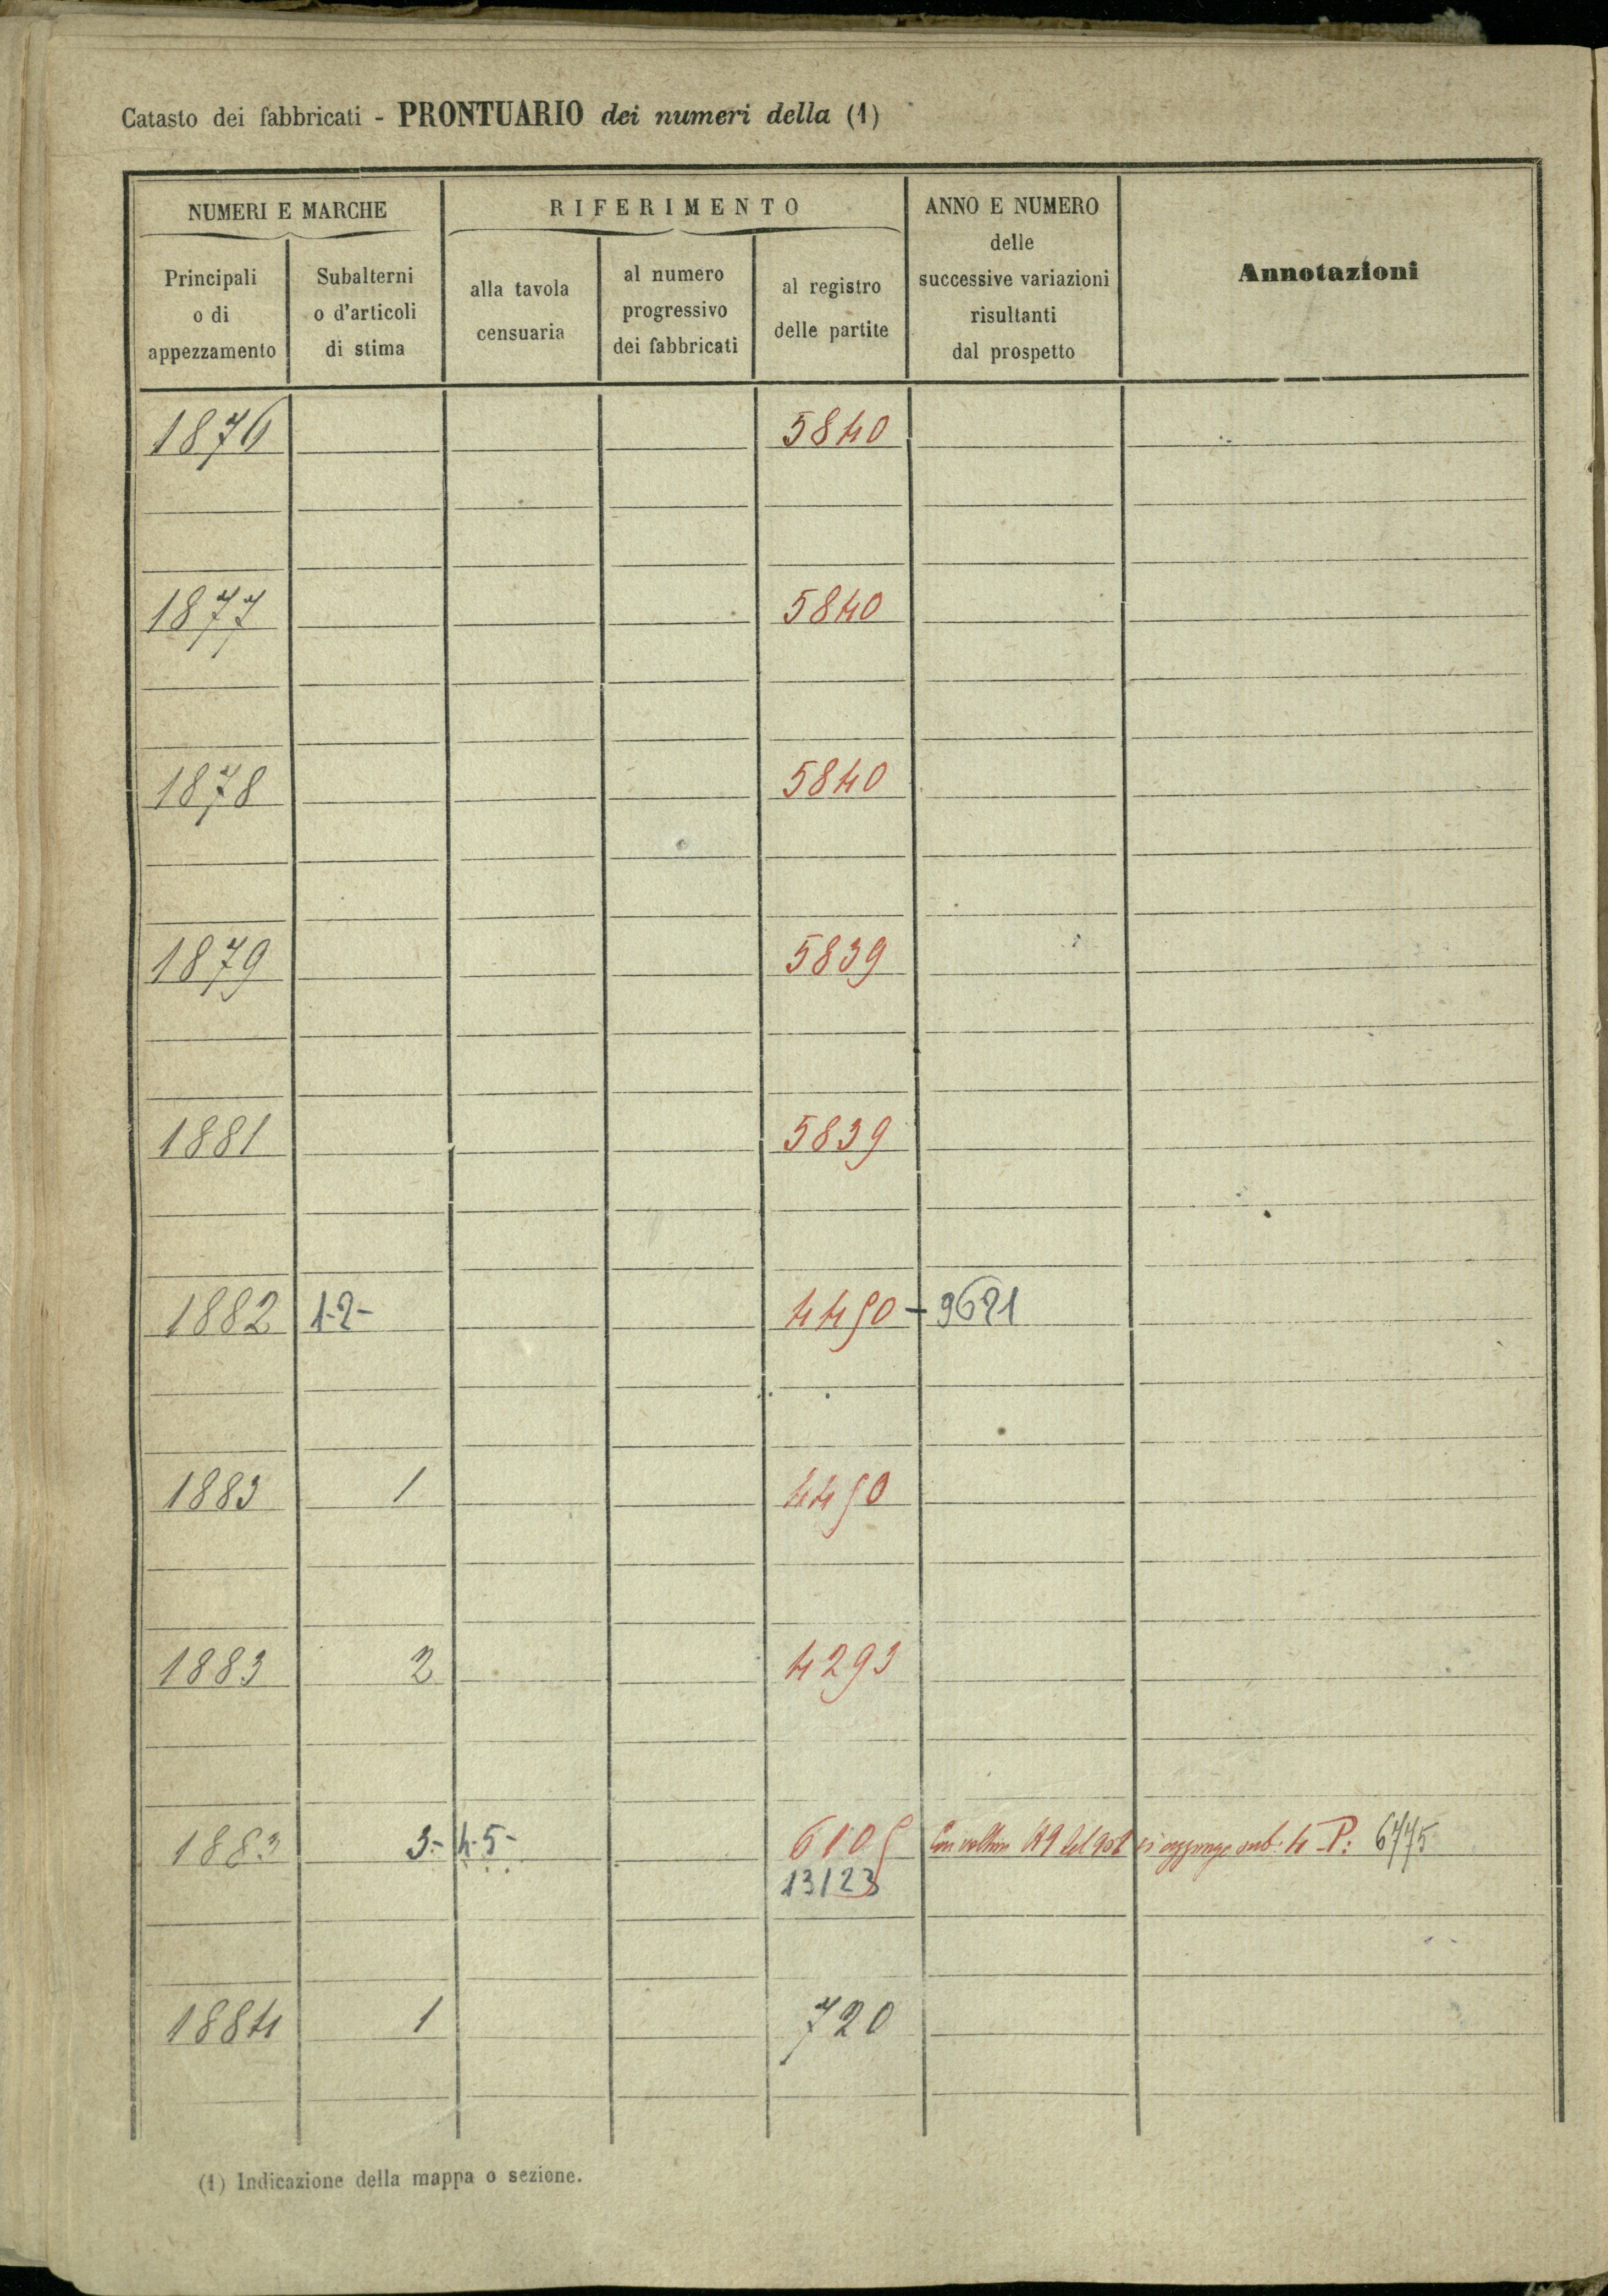 Catasto dei fabbricati - PRONTUARIO dei numeri della (1)
NUMERI E MARCHE
RIFERIMENTO
ANNO E NUMERO
delle
successive variazioni
risultanti
dal prospetto
Annotazioni
Principali
o di
appezzamento
Subalterni
o d'articoli
di stima
alla tavola
censuaria
al numero
progressivo
dei fabbricati
al registro
delle partite
1876 5840
1877 5840
1878 5840
1879 5839
1881 5839
1882 1-2- 4450 - 9621
1883 1 4450
1883 2 4293
1883 3-4-5- 6105 Con del si aggiunge sub: 4 P: 6775
13123
1884 1 720
(1) Indicazione della mappa o sezione.